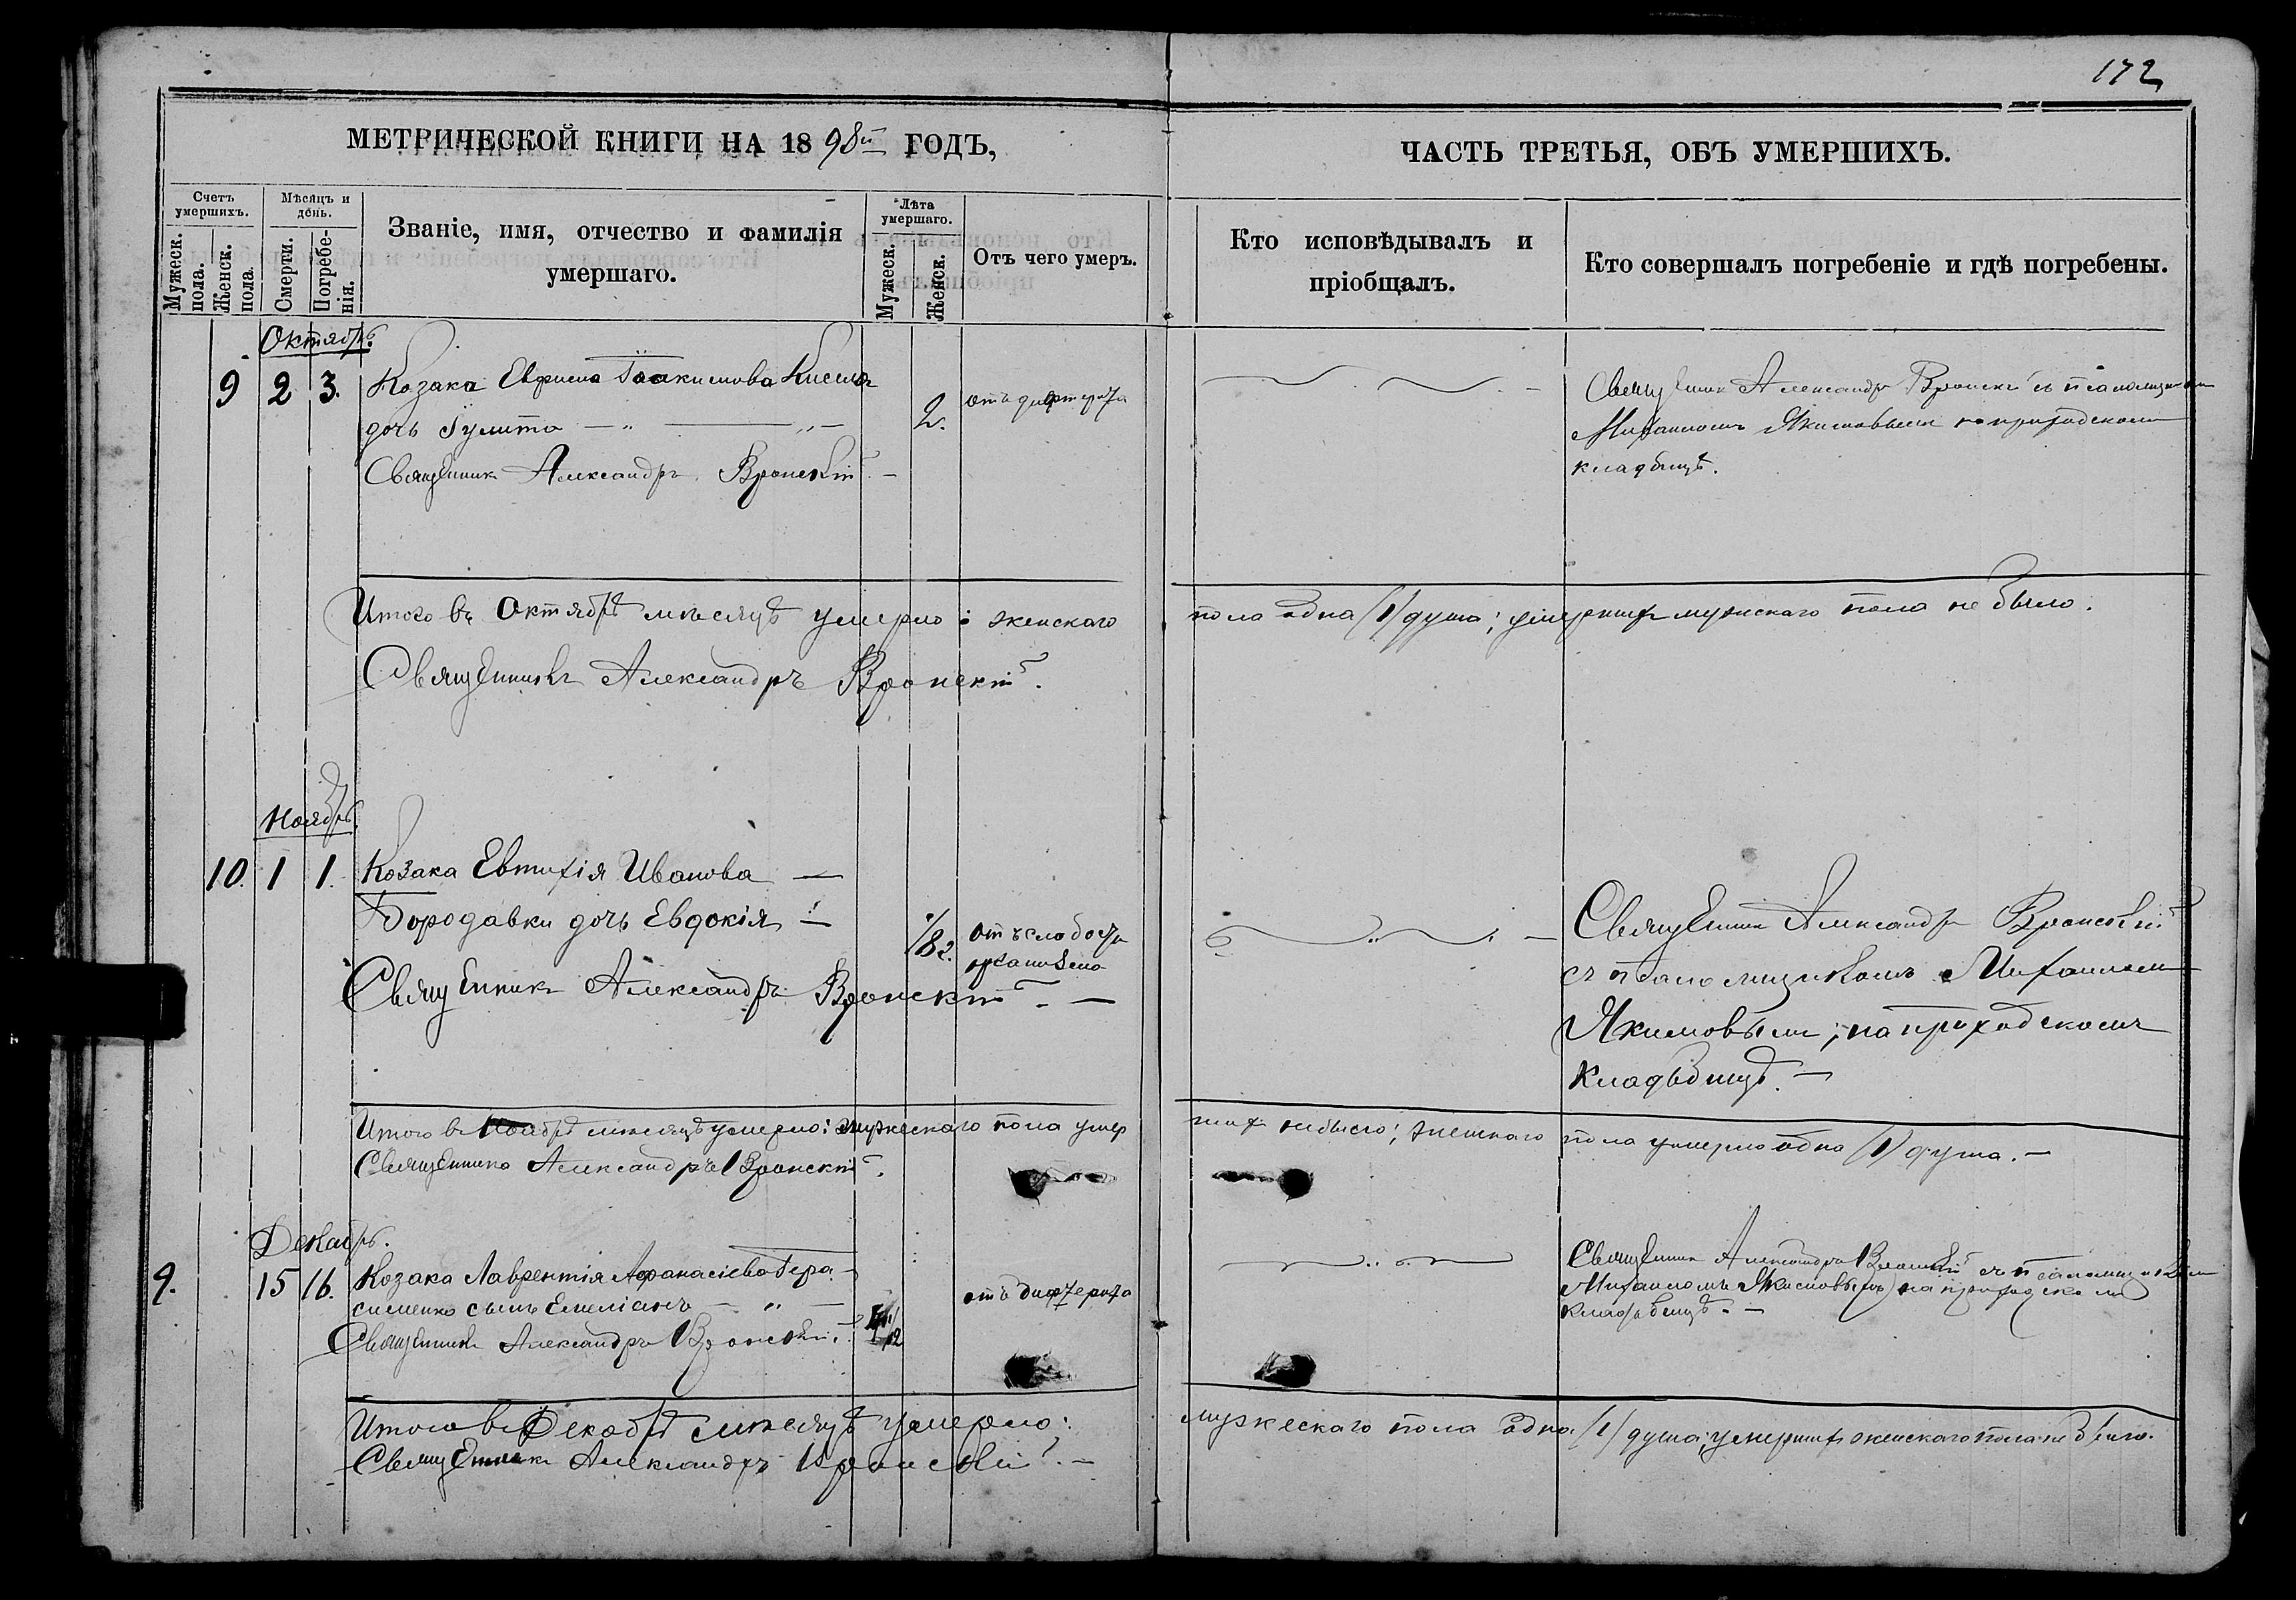 172
МЕТРИЧЕСКОЙ КНИГИ НА 1898й ГОДЪ,
ЧАСТЬ ТРЕТЬЯ, ОБЪ УМЕРШИХЪ.
Счетъ умершихъ.
Мужеск. пола.
Женск. пола.
Мѣсяцъ и день.
Смерти.
Погребенія.
Званіе, имя, отчество и фамилія
умершаго.
Лѣта умершаго.
Мужеск.
Женск.
Отъ чего умеръ.
Кто исповѣдывалъ и
пріобщалъ.
Кто совершалъ погребеніе и гдѣ погребены.
Октябрь.
9 2 3. Козака Іоакимова
дочь Іулита 2. отъ дифтерита
Священникъ Александръ Вронскій
Священникъ Александръ Вронскій съ псаломщикомъ
Михаиломъ Якимовымъ на приходскомъ
кладбищѣ.
Итого въ Октябрѣ мѣсяцѣ умерло: женскаго пола одна /1/ душа; умершихъ мужскаго пола не было.
Священникъ Александръ Вронскій.
Ноябрь.
10. 1 1. Козака Евтихія Иванова
Бородавки дочь Евдокія отъ слабости
организма
Священникъ Александръ Вронскій.
Священникъ Александръ Вронскій
съ псаломщикомъ Михаиломъ
Якимовымъ; на приходскомъ
кладбищѣ.
Итого въ Ноябрѣ мѣсяцѣ умерло: мужескаго пола умершихъ небыло; женскаго пола умерло одна /1/ душа.
Священникъ Александръ Вронскій.
Декабрь.
9. 15 16. Козака Лаврентія Афанасіева Гера-
сименко сынъ Емеліанъ отъ дифтерита
Священникъ Александръ Вронскій.
Священникъ Александръ Вронскій съ псаломщикомъ
Михаиломъ Якимовымъ на приходскомъ
кладбищѣ.
Итого въ Декабрѣ мѣсяцѣ умерло: мужескаго пола одна /1/ душа; умершихъ женскаго пола не было.
Священникъ Александръ Вронскій.